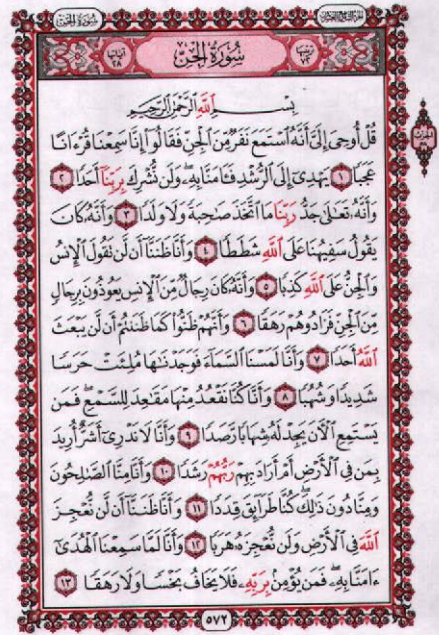 سُورَةُ الجِنِّ
الجزء التاسع والعشرون
ترتيبها ٧٢
سُورَةُ الجِنِّ
آياتها ٢٨
بِسْمِ ٱللَّهِ ٱلرَّحْمَٰنِ ٱلرَّحِيمِ
قُلْ أُوحِىَ إِلَىَّ أَنَّهُ ٱسْتَمَعَ نَفَرٌ مِّنَ ٱلْجِنِّ فَقَالُوٓا۟ إِنَّا سَمِعْنَا قُرْءَانًا
عَجَبًا ١ يَهْدِىٓ إِلَى ٱلرُّشْدِ فَـَٔامَنَّا بِهِۦ ۖ وَلَن نُّشْرِكَ بِرَبِّنَآ أَحَدًا ٢
وَأَنَّهُۥ تَعَٰلَىٰ جَدُّ رَبِّنَا مَا ٱتَّخَذَ صَٰحِبَةً وَلَا وَلَدًا ٣ وَأَنَّهُۥ كَانَ
يَقُولُ سَفِيهُنَا عَلَى ٱللَّهِ شَطَطًا ٤ وَأَنَّا ظَنَنَّآ أَن لَّن تَقُولَ ٱلْإِنسُ
وَٱلْجِنُّ عَلَى ٱللَّهِ كَذِبًا ٥ وَأَنَّهُۥ كَانَ رِجَالٌ مِّنَ ٱلْإِنسِ يَعُوذُونَ بِرِجَالٍ
مِّنَ ٱلْجِنِّ فَزَادُوهُمْ رَهَقًا ٦ وَأَنَّهُمْ ظَنُّوا۟ كَمَا ظَنَنتُمْ أَن لَّن يَبْعَثَ
ٱللَّهُ أَحَدًا ٧ وَأَنَّا لَمَسْنَا ٱلسَّمَآءَ فَوَجَدْنَٰهَا مُلِئَتْ حَرَسًا
شَدِيدًا وَشُهُبًا ٨ وَأَنَّا كُنَّا نَقْعُدُ مِنْهَا مَقَٰعِدَ لِلسَّمْعِ ۖ فَمَن
يَسْتَمِعِ ٱلْـَٔانَ يَجِدْ لَهُۥ شِهَابًا رَّصَدًا ٩ وَأَنَّا لَا نَدْرِىٓ أَشَرٌّ أُرِيدَ
بِمَن فِى ٱلْأَرْضِ أَمْ أَرَادَ بِهِمْ رَبُّهُمْ رَشَدًا ١٠ وَأَنَّا مِنَّا ٱلصَّٰلِحُونَ
وَمِنَّا دُونَ ذَٰلِكَ ۖ كُنَّا طَرَآئِقَ قِدَدًا ١١ وَأَنَّا ظَنَنَّآ أَن لَّن نُّعْجِزَ
ٱللَّهَ فِى ٱلْأَرْضِ وَلَن نُّعْجِزَهُۥ هَرَبًا ١٢ وَأَنَّا لَمَّا سَمِعْنَا ٱلْهُدَىٰٓ
ءَامَنَّا بِهِۦ ۖ فَمَن يُؤْمِنۢ بِرَبِّهِۦ فَلَا يَخَافُ بَخْسًا وَلَا رَهَقًا ١٣
٥٧٢